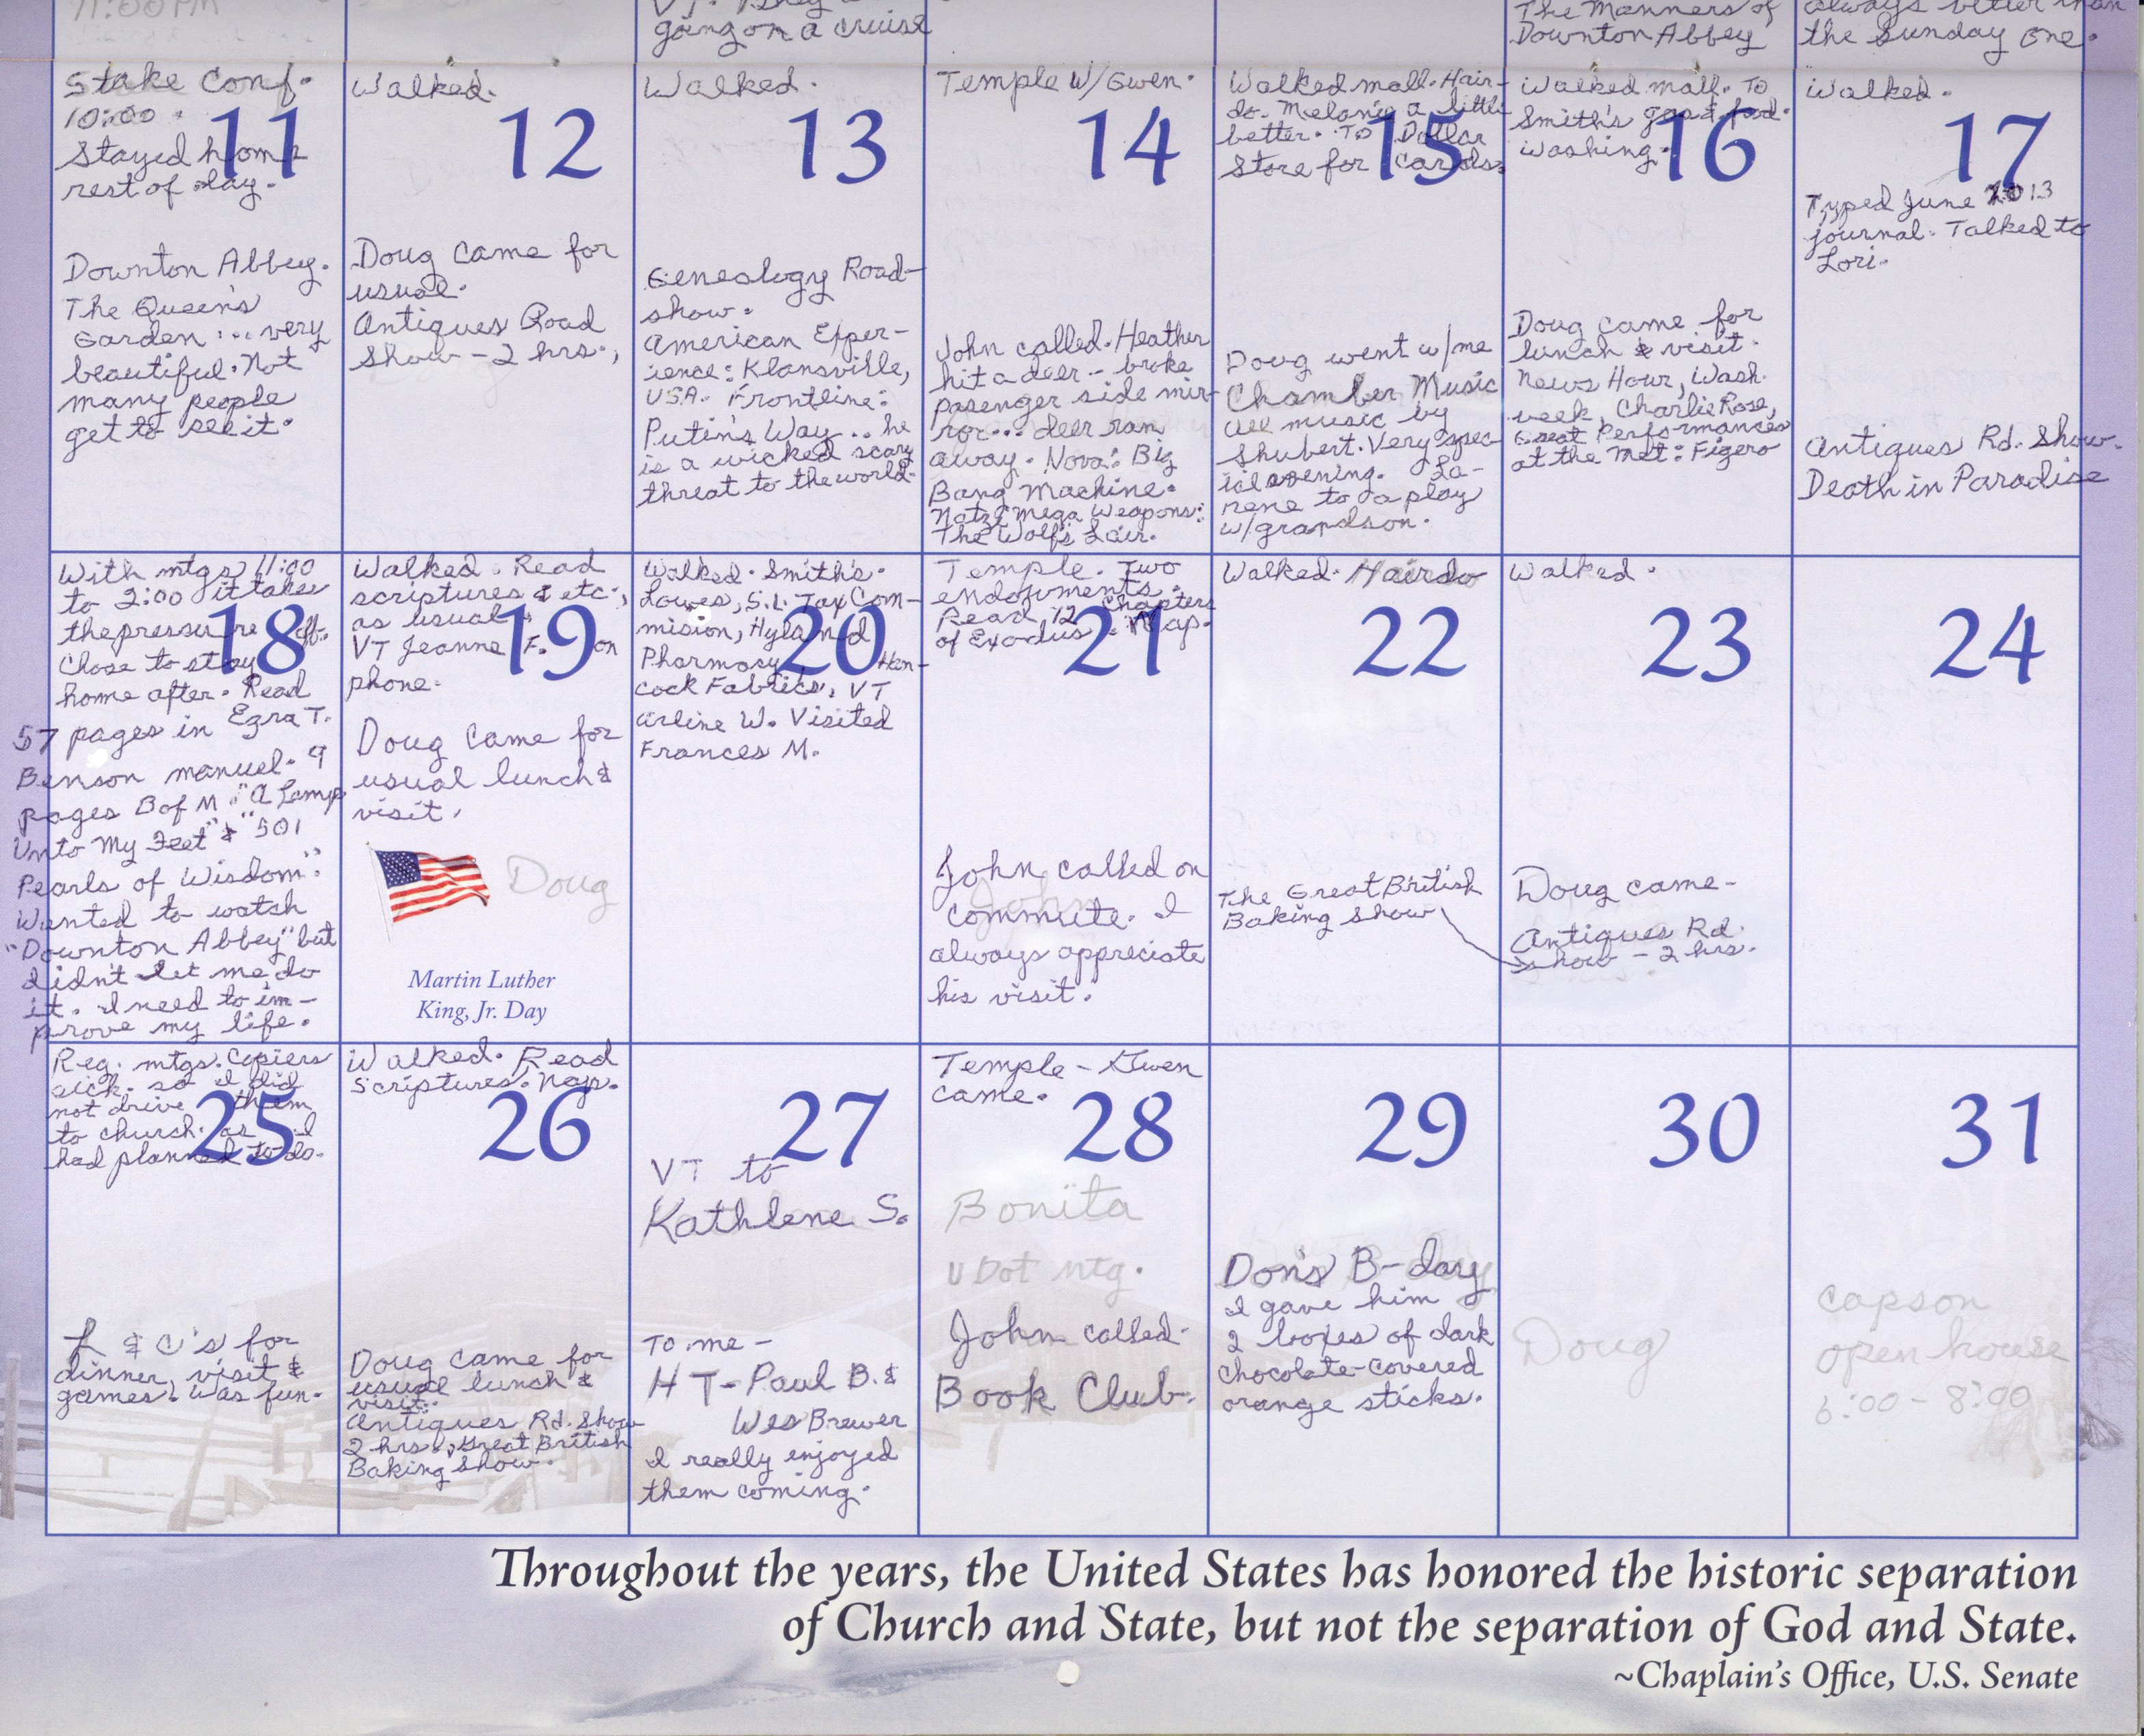 11:00 PM
going on a cruise
The Manners of
Downton Abbey
always better than
the Sunday one.
Stake Conf.
10:00.
Stayed home
rest of day.
11
Downton Abbey.
The Queen's
Garden... very
beautiful. Not
many people
get to see it.
Walked.
12
Doug came for
usual.
Antiques Road
Show - 2 hrs.,
Walked.
13
Genealogy Road-
show.
American Exper-
ience: Klansville,
USA. Frontline:
Putin's Way.. he
is a wicked scary
threat to the world.
Temple W/Gwen.
14
John called. Heather
hit a deer - broke
pasenger side mir-
ror... deer ran
away. Nova: Big
Bang Machine.
Natzi Mega Weapons:
The Wolf's Lair.
Walked mall. Hair-
do. Melonie a little
better. To Dollar
Store for cards.
15
Doug went w/me
Chamber Music
all music by
Shubert. Very spec-
ial evening. La-
rene to a play
w/grandson.
Walked mall. To
Smith's gas & food.
Washing.
16
Doug came for
lunch & visit.
News Hour, Wash.
week, Charlie Rose,
Great Performances
at the Met: Figero
Walked.
17
Typed June 2013
journal. Talked to
Lori.
Antiques Rd. Show.
Death in Paradise
With mtgs 11:00
to 2:00 it takes
the pressure off.
Chose to stay
home after. Read
57 pages in Ezra T.
Benson manuel. 9
pages B of M. "A Lamp
Unto My Feet" & "501
Pearls of Wisdom".
Wanted to watch
"Downton Abbey" but
didn't let me do
it. I need to im-
prove my life.
18
Walked. Read
scriptures & etc.,
as usual.
VT Jeanne F. on
phone.
19
Doug came for
usual lunch &
visit.
Doug
Martin Luther
King, Jr. Day
Walked. Smith's.
Lowes, S.L. Tax Com-
mision, Hyland
Pharmacy, Han-
cock Fabrics, VT
Arline W. Visited
Frances M.
20
Temple. Two
endowments.
Read 12 Chapters
of Exodus. Nap.
21
John called on
commute. I
always appreciate
his visit.
John
Walked. Hairdo
22
The Great British
Baking Show
Walked.
23
Doug came-
Antiques Rd.
Show - 2 hrs.
24
Reg. mtgs. Copiers
sick. so I did
not drive them
to church. as I
had planned to do.
25
L & C's for
dinner, visit &
games. Was fun.
Walked. Read
Scriptures. Nap.
26
Doug came for
usual lunch &
visit.
Antiques Rd. Show
2 hrs., Great British
Baking Show.
27
VT to
Kathlene S.
To me -
HT- Paul B. &
Wes Brewer
I really enjoyed
them coming.
Temple - Gwen
came.
28
Bonita
UDot mtg.
John called.
Book Club.
29
Don's B-day
I gave him
2 boxes of dark
chocolate-covered
orange sticks.
30
Doug
31
Capson
open house
6:00 - 8:00
Throughout the years, the United States has honored the historic separation
of Church and State, but not the separation of God and State.
~Chaplain's Office, U.S. Senate